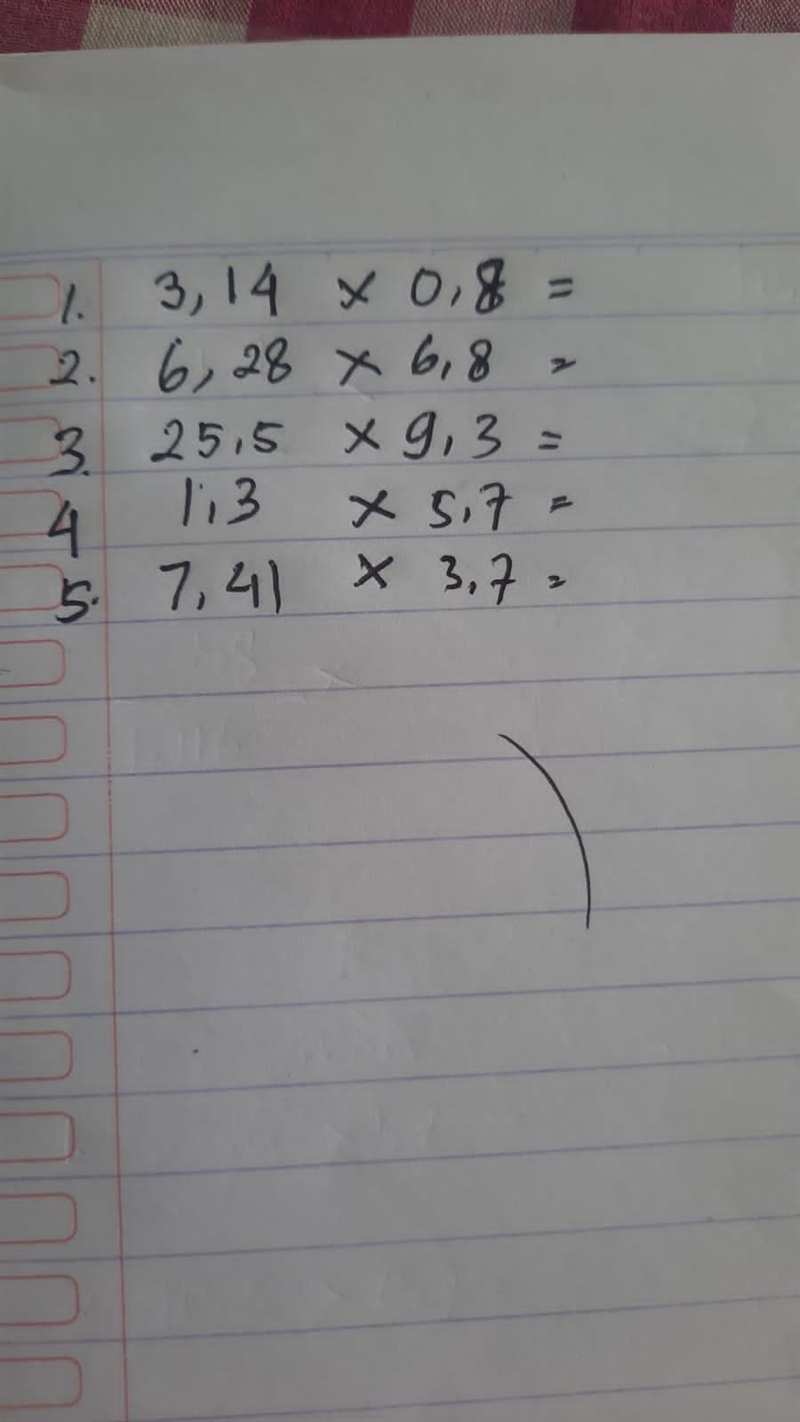 1. 3,14 x 0,8 =
2. 6,28 x 6,8 =
3. 25,5 x 9,3 =
4 1,3 x 5,7 =
5. 7,41 x 3,7 =